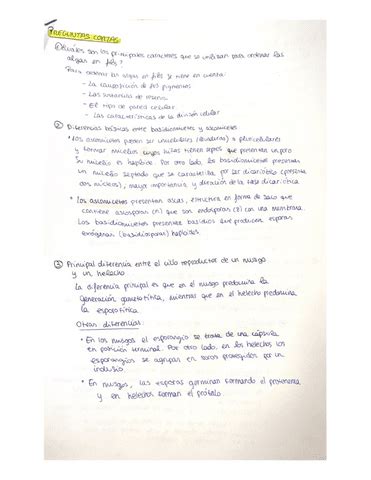 PREGUNTAS CORTAS
① ¿Cuáles son los principales caracteres que se utilizan para ordenar las
algas en fila?
Para ordenar las algas en fila se tiene en cuenta:
- La composición de los pigmentos
- Las sustancias de reserva
- El tipo de pared celular
- Las características de la división celular
② Diferencias básicas entre basidiomicetes y ascomicetes
• Los ascomicetes pueden ser unicelulares (levaduras) o pluricelulares
y formar micelios cuyas hifas tienen septos que presentan un poro
Su micelio es haploide. Por otro lado, los basidiomicetes presentan
un micelio septado que se caracteriza por ser dicariótico (presenta
dos núcleos), mayor importancia y duración de la fase dicariótica
• Los ascomicetes presentan ascas, estructura en forma de saco que
contiene ascosporas (n) que son endosporas (8) con una membrana.
Los basidiomicetes presentan basidios que producen esporas
exógenas (basidiosporas) haploides.
③ Principal diferencia entre el ciclo reproductor de un musgo
y un helecho
La diferencia principal es que en el musgo predomina la
generación gametofítica, mientras que en el helecho predomina
la esporofítica
Otras diferencias:
• En los musgos el esporangio se trata de una cápsula
en posición terminal. Por otro lado, en los helechos los
esporangios se agrupan en soros protegidos por un
indusio.
• En musgos, las esporas germinan formando el protonema
y en helechos forman el prótalo